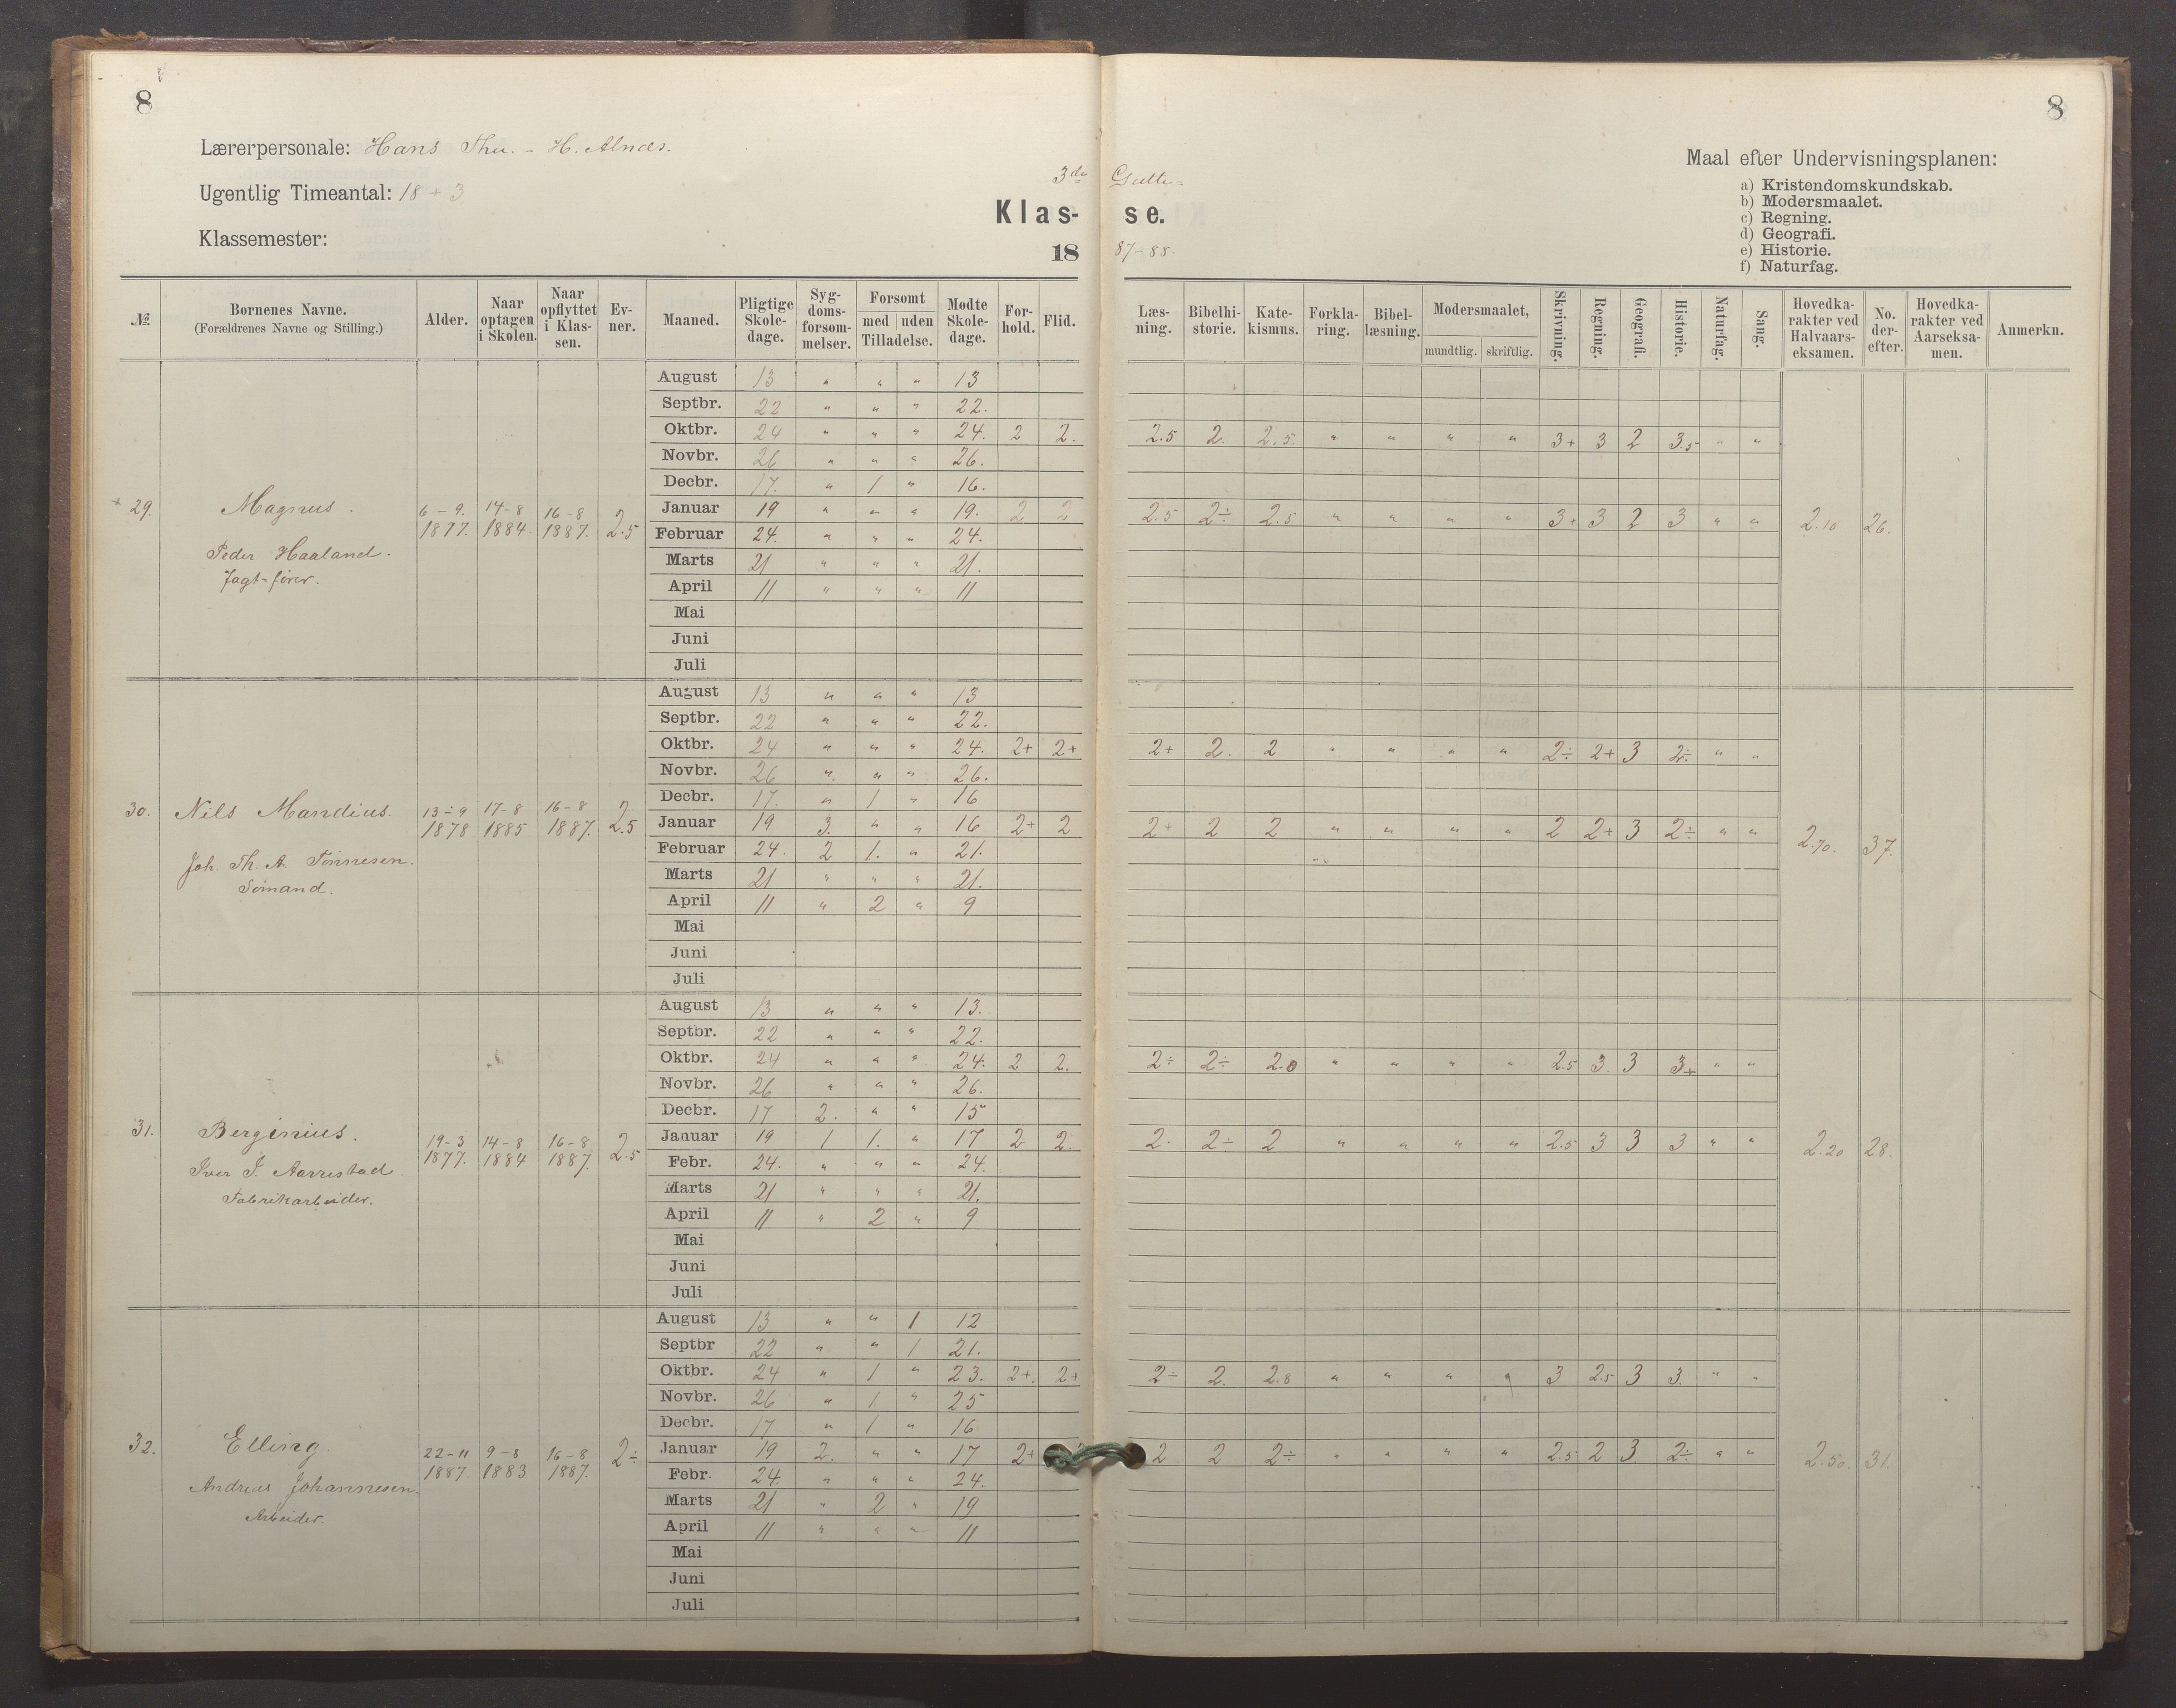 8
Lærerpersonale: Hans Thu. - H. Alnæs.
Ugentlig Timeantal: 18 + 3
Klassemester:
3die Gutte-
Klas- se.
18 87-88.
8
Maal efter Undervisningsplanen:
a) Kristendomskundskab.
b) Modersmaalet.
c) Regning.
d) Geografi.
e) Historie.
f) Naturfag.
№. Børnenes Navne. (Forældrenes Navne og Stilling.) Alder. Naar optagen i Skolen. Naar opflyttet i Klassen. Evner. Maaned. Pligtige Skoledage. Sygdomsforsømmelser. Forsømt med uden Tilladelse. Mødte Skoledage. Forhold. Flid. Læsning. Bibelhistorie. Katekismus. Forklaring. Bibellæsning. Modersmaalet, mundtlig. skriftlig. Skrivning. Regning. Geografi. Historie. Naturfag. Sang. Hovedkarakter ved Halvaarseksamen. No. derefter. Hovedkarakter ved Aarseksamen. Anmerkn.
29. Magnus.
Peder Haaland.
Jagt-fører.
6-9. 1877. 14-8 1884. 16-8 1887. 2.5
August 13 " " " 13
Septbr. 22 " " " 22.
Oktbr. 24 " " " 24. 2 2. 2.5 2. 2.5. " " " " 3+ 3 2 3.5 " "
Novbr. 26 " " " 26.
Decbr. 17. " 1 " 16.
Januar 19 " " " 19. 2 2 2.5 2÷ 2.5 " " " " 3+ 3 2 3 " " 2.10 26.
Februar 24. " " " 24.
Marts 21 " " " 21.
April 11 " " " 11
Mai
Juni
Juli
30. Nils Mandius.
Joh. Th. A. Tønnesen.
Sømand.
13÷9 1878 17-8 1885 16-8 1887. 2.5
August 13 " " " 13
Septbr. 22 " " " 22.
Oktbr. 24 " " " 24. 2+ 2+ 2+ 2. 2 " " " " 2÷ 2+ 3 2÷ " "
Novbr. 26 " " " 26.
Decbr. 17. " 1 " 16
Januar 19 3. " " 16 2+ 2 2+ 2 2 " " " " 2 2+ 3 2÷ " " 2.70. 37.
Februar 24. 2 1. " 21.
Marts 21 " " " 21.
April 11 " 2 " 9
Mai
Juni
Juli
31. Berginius.
Iver J. Aarrestad.
Fabrikarbeider.
19-3 1877. 14-8 1884 16-8 1887. 2.5
August 13 " " " 13.
Septbr. 22 " " " 22.
Oktbr. 24 " " " 24. 2 2. 2÷ 2÷ 2.0 " " " " 2.5 3. 3 3+ " "
Novbr. 26 " " " 26.
Decbr. 17 2. " " 15
Januar 19 1 1. " 17 2 2. 2. 2÷ 2 " " " " 2.5 3 3 3 " " 2.20 28.
Febr. 24. " " " 24.
Marts 21 " " " 21.
April 11 " 2 " 9
Mai
Juni
Juli
32. Elling.
Andreas Johannesen.
Arbeider.
22-11 1887. 9-8 1883 16-8 1887. 2÷
August 13 " " 1 12
Septbr 22 " " 1 21.
Oktbr. 24 " 1 " 23. 2+. 2+ 2÷ 2. 2.8 " " " " 3 2.5 3 3. " "
Novbr. 26 " 1. " 25
Decbr. 17 " 1 " 16
Januar 19 2. " " 17 2+ 2 2 2÷ " " " " 2.5 2 3. 2÷ " " 2.50. 31.
Febr. 24. " " " 24.
Marts 21 " 2 " 19
April 11 " " " 11
Mai
Juni
Juli